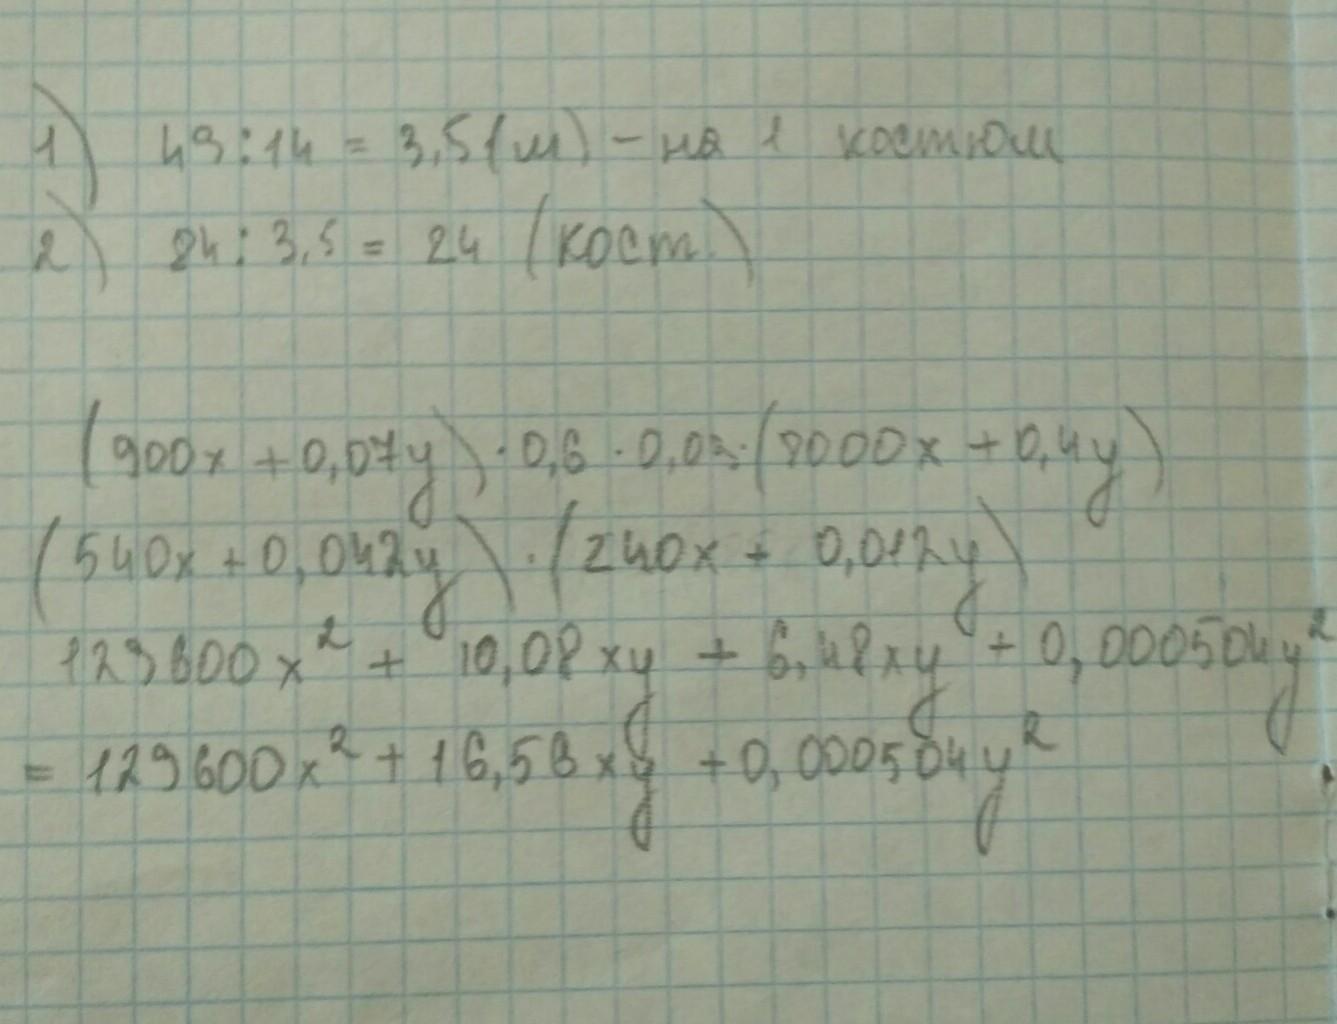 1) 49:14 = 3,5 (м) - на 1 костюм
2) 84:3,5 = 24 (кост.)
(900x + 0,07y) · 0,6 · 0,03 · (8000x + 0,4y)
(540x + 0,042y) · (240x + 0,012y)
129600x² + 10,08xy + 6,48xy + 0,000504y²
= 129600x² + 16,56xy + 0,000504y²